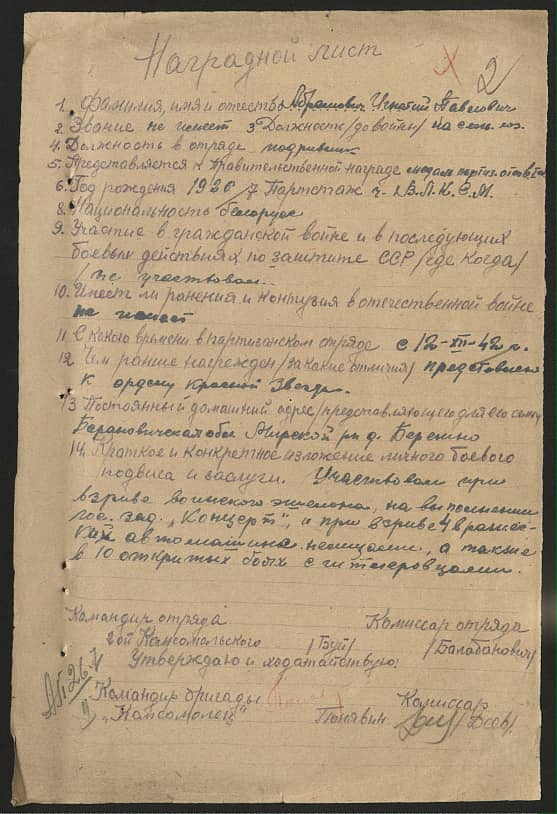 Наградной лист
2
1. Фамилия, имя и отество Абрамович Игнатий Павлович
2. Звание не имеет 3 Должность /до войны/ на сель. хоз.
4. Должность в отряде подрывник
5. Представляется к Правительственной награде медаль партиз. отеч.
6. Год рождения 1926 7 Партстаж ч. В.Л.К.С.М.
8. Национальность белорус
9. Участие в гражданской войне и в последующих
боевых действиях по защите ССР /где когда/
не участвовал.
10. Имеет ли ранения и контузия в отечественной войне
не имеет
11. С какого времени в партизанском отряде с 12-XII-42 г.
12. Чем ранше награжден /за какие отличия/ представлен
к ордену Красной Звезды.
13 Постоянный домашний адрес /представляющего для его семьи
Барановичская обл Мирской рн д. Березно
14. Краткое и конкретное изложение личного боевого
подвиса и заслуги. Участвовал при
взриве воинского эшелона, на выполнении
гос. зад. „Концерт", и при взриве 4 вражес-
ких автомашина немцами, а также
в 10 открытых боях с гитлеровцами.
Командир отряда Комиссар отряда
2ой Комсомольского /Буй/ /Балабанович/
Утверждаю и ходатайствую:
Командир бригады Комиссар
„Комсомолец"
26.7